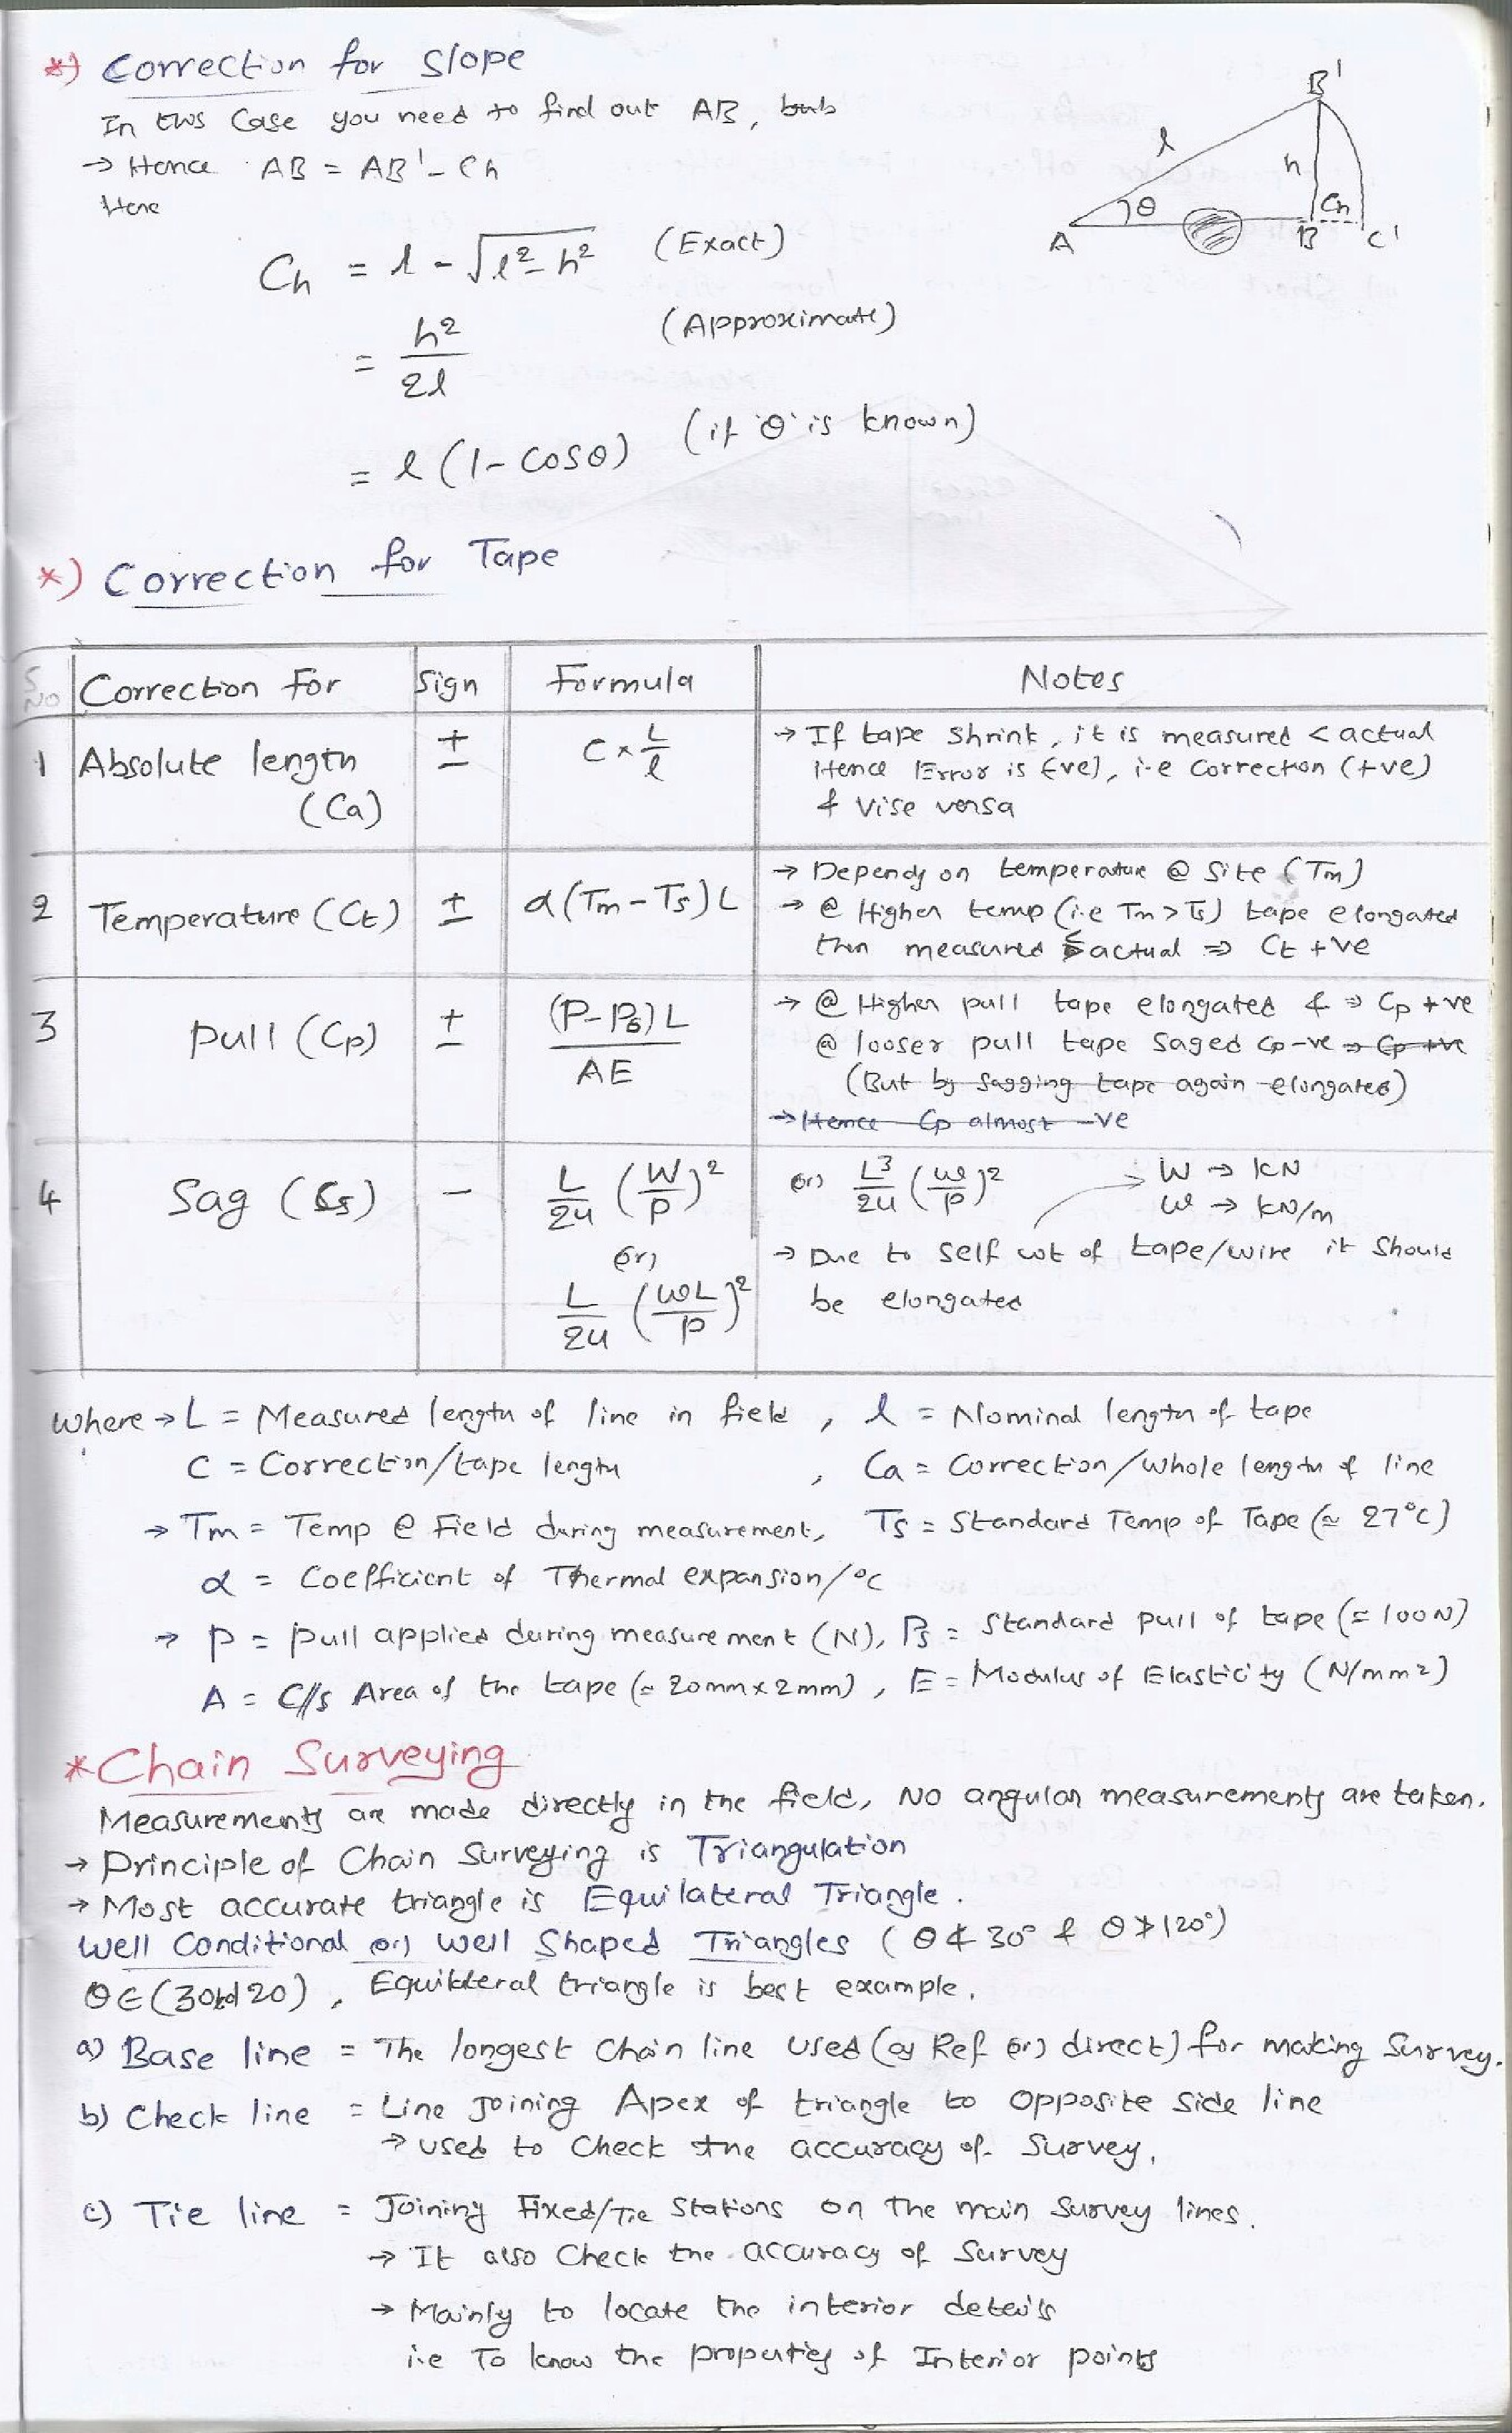 *) Correction for slope
In this Case you need to find out AB,
→ Hence AB = AB' - Ch
Here
Ch = l - √(l² - h²) (Exact)
= h²/2l (Approximate)
= l (1 - cosθ) (if 'θ' is known)
B'
l
h
θ
Ch
A
B
C'
*) Correction for Tape
S No | Correction For | Sign | Formula | Notes
1 | Absolute length (Ca) | ± | C × L/l | → If tape shrink, it is measured < actual
Hence Error is (-ve), i.e Correction (+ve)
& vise versa
2 | Temperature (Ct) | ± | α(Tm - Ts) L | → Depends on temperature @ site (Tm)
→ @ Higher temp (i.e Tm > Ts) tape elongated
then measured < actual ⇒ Ct +ve
3 | Pull (Cp) | ± | (P - Ps) L / AE | → @ Higher pull tape elongated & ⇒ Cp +ve
@ looser pull tape saged Cp -ve ⇒ Cp +ve
(But by sagging tape again elongated)
→ Hence Cp almost -ve
4 | Sag (Cs) | - | L/24 (W/P)² (or) L/24 (wL/P)² | (or) L³/24 (w/P)² → W → kN
w → kN/m
→ Due to self wt of tape/wire it should
be elongated
where → L = Measured length of line in field , l = Nominal length of tape
C = Correction/tape length , Ca = Correction/whole length of line
→ Tm = Temp @ Field during measurement, Ts = Standard Temp of Tape (≈ 27°C)
α = Coefficient of Thermal expansion/°C
→ P = Pull applied during measurement (N), Ps = Standard pull of tape (≈ 100N)
A = C/s Area of the tape (≈ 20mm x 2mm) , E = Modulus of Elasticity (N/mm²)
* Chain Surveying
Measurements are made directly in the field, No angular measurements are taken.
→ Principle of Chain Surveying is Triangulation
→ Most accurate triangle is Equilateral Triangle.
Well Conditional (or) well Shaped Triangles (θ ≮ 30° & θ ≯ 120°)
θ ∈ (30to120) , Equilateral triangle is best example.
a) Base line = The longest chain line used (as Ref (or) direct) for making Survey.
b) Check line = Line Joining Apex of triangle to opposite side line
→ used to check the accuracy of Survey.
c) Tie line = Joining Fixed/Tie Stations on the main Survey lines.
→ It also Check the accuracy of Survey
→ Mainly to locate the interior details
i.e To know the properties of Interior points